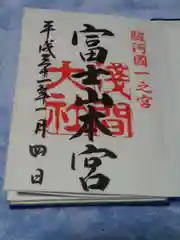 駿河國一之宮
富士山本宮
淺間
大社
平成三十一年一月四日